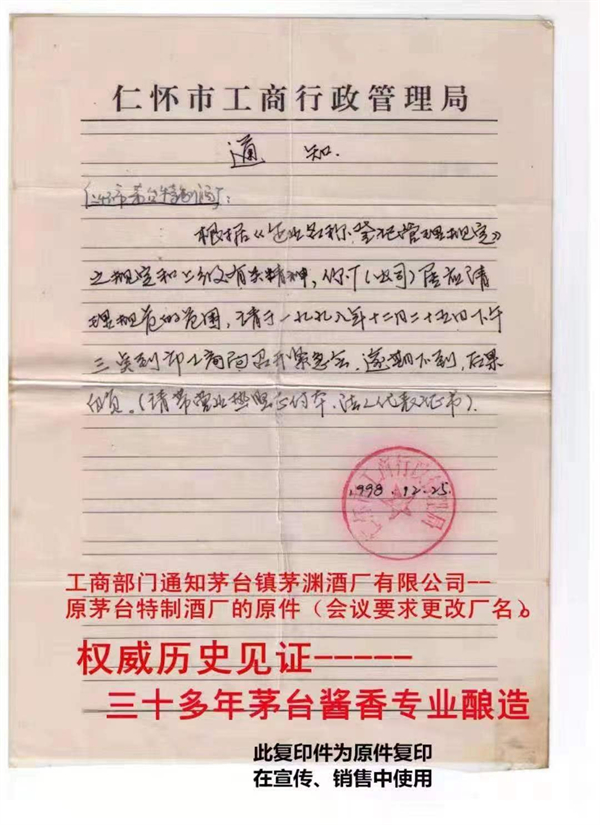 仁怀市工商行政管理局
通 知.
仁怀市茅台特制酒厂:
根据《企业名称登记管理规定》
之规定和上级有关精神,你厂(公司)属应清
理规范的范围,请于一九九八年十二月二十五日下午
三点到市工商局召开紧急会,逾期不到,后果
自负。(请带营业执照正付本、法人代表证书).
1998.12.25.
工商部门通知茅台镇茅渊酒厂有限公司--
原茅台特制酒厂的原件(会议要求更改厂名)。
权威历史见证-----
三十多年茅台酱香专业酿造
此复印件为原件复印
在宣传、销售中使用